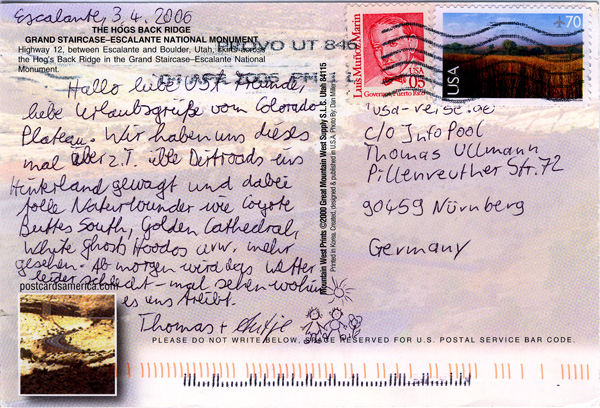 Escalante, 3.4.2006
THE HOGS BACK RIDGE
GRAND STAIRCASE–ESCALANTE NATIONAL MONUMENT
Highway 12, between Escalante and Boulder, Utah, skirts across
the Hog's Back Ridge in the Grand Staircase–Escalante National
Monument.
PROVO UT 846
01 APR 2006 PM
Luis Muñoz Marín
Governor, Puerto Rico
USA
05
USA
70
Hallo liebe USA Freunde,
liebe Urlaubsgrüße vom Colorado
Plateau. Wir haben uns dieses
mal über z.T. üble Dirtroads ins
Hinterland gewagt und dabei
tolle Naturwunder wie Coyote
Buttes South, Golden Cathedral,
White Ghosts Hoodos usw. mehr
gesehen. Ab morgen wird das Wetter
leider schlecht - mal sehen wohin
es uns treibt.
Thomas + Antje
postcardsamerica.com
Mountain West Prints ©2000 Great Mountain West Supply S.L.C. Utah 84115
Printed in Korea. Created, designed & published in U.S.A. Photo By: Dan Miller
usa-reise.de
c/o InfoPool
Thomas Ullmann
Pillenreuther Str. 72
90459 Nürnberg
Germany
PLEASE DO NOT WRITE BELOW, SPACE RESERVED FOR U.S. POSTAL SERVICE BAR CODE.